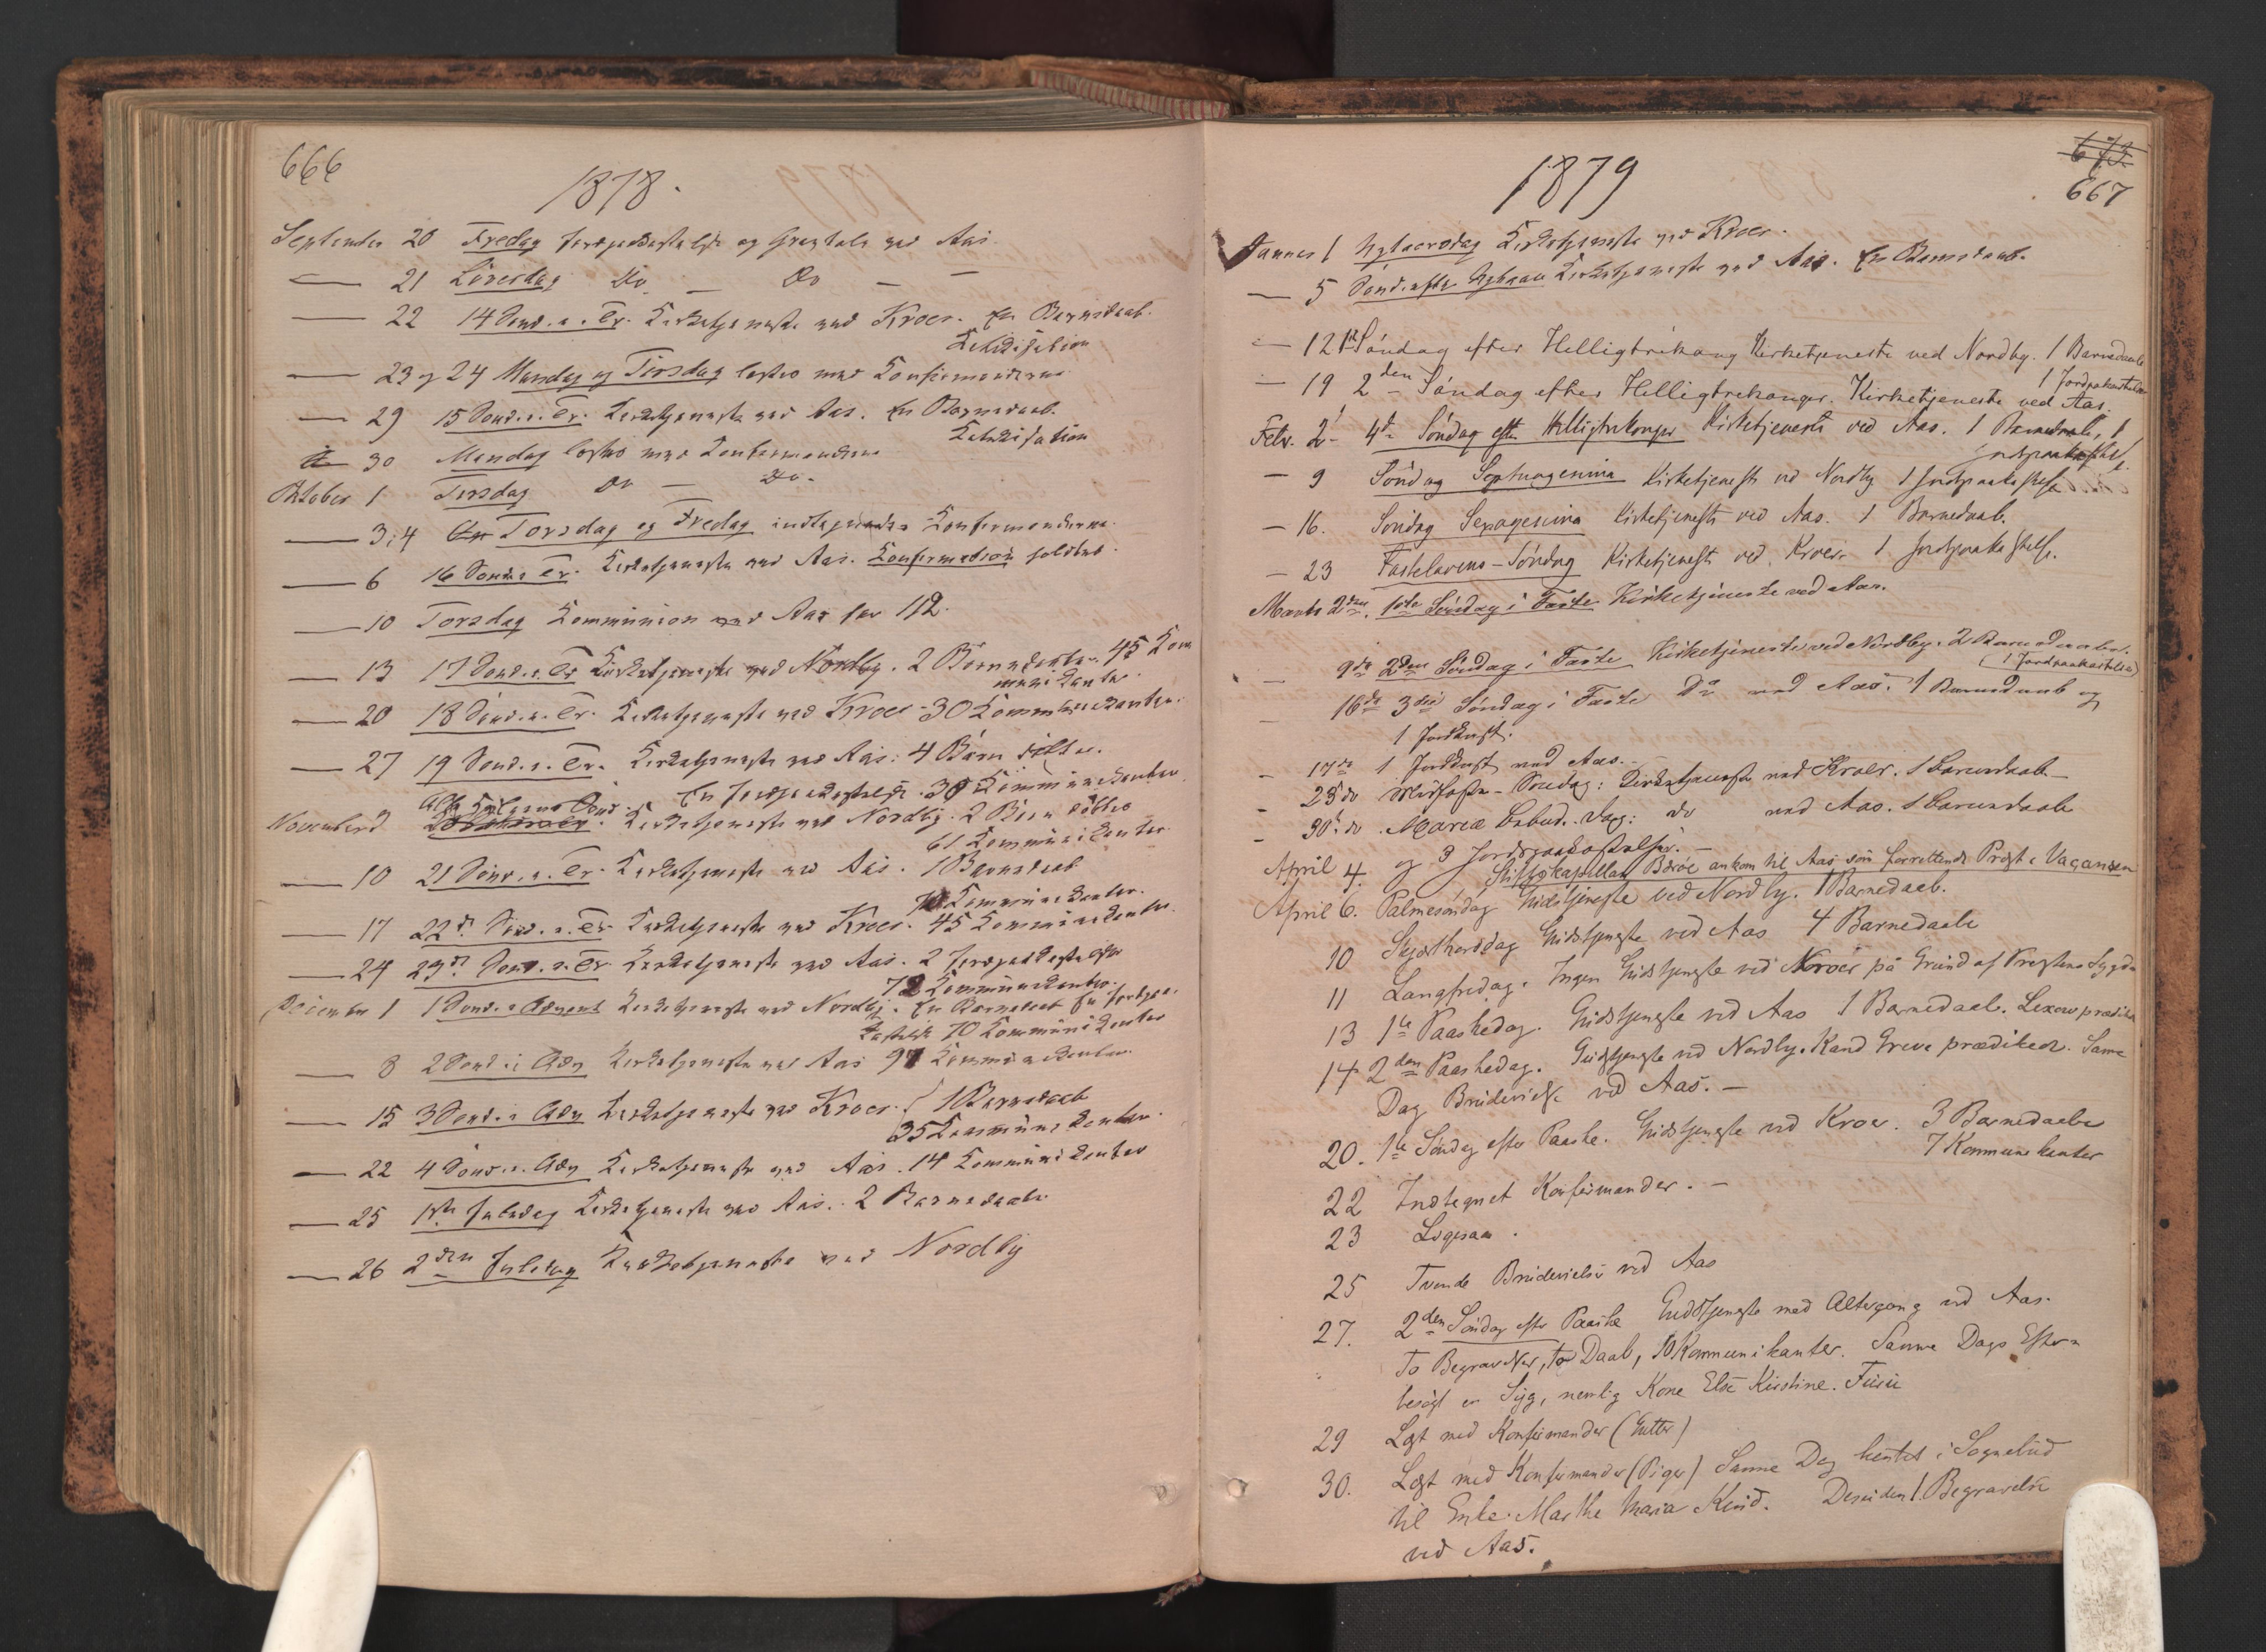 666
1878.
September 20 Fredag Jordpaakastelse og Gravtale ved Aas.
— 21 Löverdag Do — Do —
— 22 14 Sönd. e. Tr. Kirketjeneste ved Kroer. En Barnedaab.
Katekisation
— 23 og 24 Mandag og Tirsdag læstes med Konfirmanderne
— 29 15 Sönd. e. Tr. Kirketjeneste ved Aas. En Barnedaab.
Katekisation
30 Mandag læstes med Konfirmanderne
Oktober 1 Tirsdag Do — Do.
— 3, 4 Torsdag og Fredag Konfirmanderne.
— 6 16 Sönd. e. Tr. Kirketjeneste ved Aas. Konfirmation holdtes.
— 10 Torsdag Kommunion ved Aas for 112.
— 13 17 Sönd. e. Tr. Kirketjeneste ved Nordby. 2 Barnedaabe. 45 Kom
munikanter.
— 20 18 Sönd. e. Tr. Kirketjeneste ved Kroer. 30 Kommunikanter.
— 27 19 Sönd. e. Tr. Kirketjeneste ved Aas. 4 Börn döbte.
En Jordpaakastelse. 30 Kommunikanter.
November Alle Helgens Sönd. Kirketjeneste ved Nordby. 2 Börn döbte
61 Kommunikanter.
— 10 21 Sönd. e. Tr. Kirketjeneste ved Aas. 1 Barnedaab
Kommunikanter.
— 17 22de Sönd. e. Tr. Kirketjeneste ved Kroer. 45 Kommunikanter.
— 24 23de Sönd. e. Tr. Kirketjeneste ved Aas. 2 Jordpaakastelser
72 Kommunikanter.
December 1 1 Sönd. i Advent Kirketjeneste ved Nordby. En Barnedaab En Jordpaa
kastelse 70 Kommunikanter
— 8 2 Sönd. i Adv Kirketjeneste ved Aas 97 Kommunikanter.
— 15 3 Sönd. i Adv Kirketjeneste ved Kroer. 1 Barnedaab
35 Kommunikanter.
— 22 4 Sönd. i Adv Kirketjeneste ved Aas. 14 Kommunikanter
— 25 1ste Juledag Kirketjeneste ved Aas. 2 Barnedaabe.
— 26 2den Juledag Kirketjeneste ved Nordby
1879
673
667
Januar 1 Nytaarsdag Kirketjeneste ved Kroer.
— 5 Sönd. efter Nytaar Kirketjeneste ved Aas. En Barnedaab.
— 12 1ste Söndag efter Helligtrekong Kirketjeneste ved Nordby. 1 Barnedaab
1 Jordpaakastelse
— 19 2den Söndag efter Helligtrekonger. Kirketjeneste ved Aas.
Febr. 2 - 4de Söndag efter Helligtrekonger Kirketjeneste ved Aas. 1 Barnedaab, 1
Jordpaakastelse.
— 9 Söndag Septuagesima Kirketjeneste ved Nordby 1 Jordpaakastelse
— 16. Söndag Sexagesima Kirketjeneste ved Aas. 1 Barnedaab.
— 23 Fastelavens-Söndag Kirketjeneste ved Kroer 1 Jordpaakastelse.
Marts 2den. 1ste Söndag i Faste Kirketjeneste ved Aas.
— 9de 2den Söndag i Faste Kirketjeneste ved Nordby. 2 Barnedaabe.
(1 Jordpaakastelse)
— 16de 3die Söndag i Faste Do ved Aas. 1 Barnedaab og
1 Jordkast.
— 17de 1 Jordkast ved Aas.
— 23de Midfaste-Söndag: Kirketjeneste ved Kroer. 1 Barnedaab —
— 30te do Mariæ Bebud. Dag: do ved Aas. 1 Barnedaab
og 3 Jordpaakastelser. —
April 4. Stiftskapellan Börve ankom til Aas som forrettende Prest i Vacansen
April 6. Palmesöndag Gudstjeneste ved Nordby. 1 Barnedaab.
10 Skjærthorsdag Gudstjeneste ved Aas 4 Barnedaabe
11 Langfredag. Ingen Gudstjeneste ved Kroer på Grund af Prestens Sygd
13 1ste Paaskedag. Gudstjeneste ved Aas 1 Barnedaab. Lexow prædiked
14 2den Paaskedag. Gudstjeneste ved Nordby. Kand Greve prædiked. Same
Dag Brudevielse ved Aas. —
20. 1ste Söndag efter Paaske. Gudstjeneste ved Kroer. 3 Barnedaabe
7 Kommunikanter
22 Indtegnet Konfirmander. —
23 Ligesaa.
25 Tvende Brudevielser ved Aas
27. 2den Söndag efter Paaske Gudstjeneste med Altergang ved Aas.
To Begravelser, To Daab, 10 Kommunikanter. Samme Dags Efterm
besögt en Syg, nemlig Kone Else Kirstine.
29 Læst med Konfirmander (Gutter)
30. Læst med Konfirmander (Piger) Samme Dag hentet i Sognebud
til Enke Marthe Maria Desuden 1 Begravelse
ved Aas.